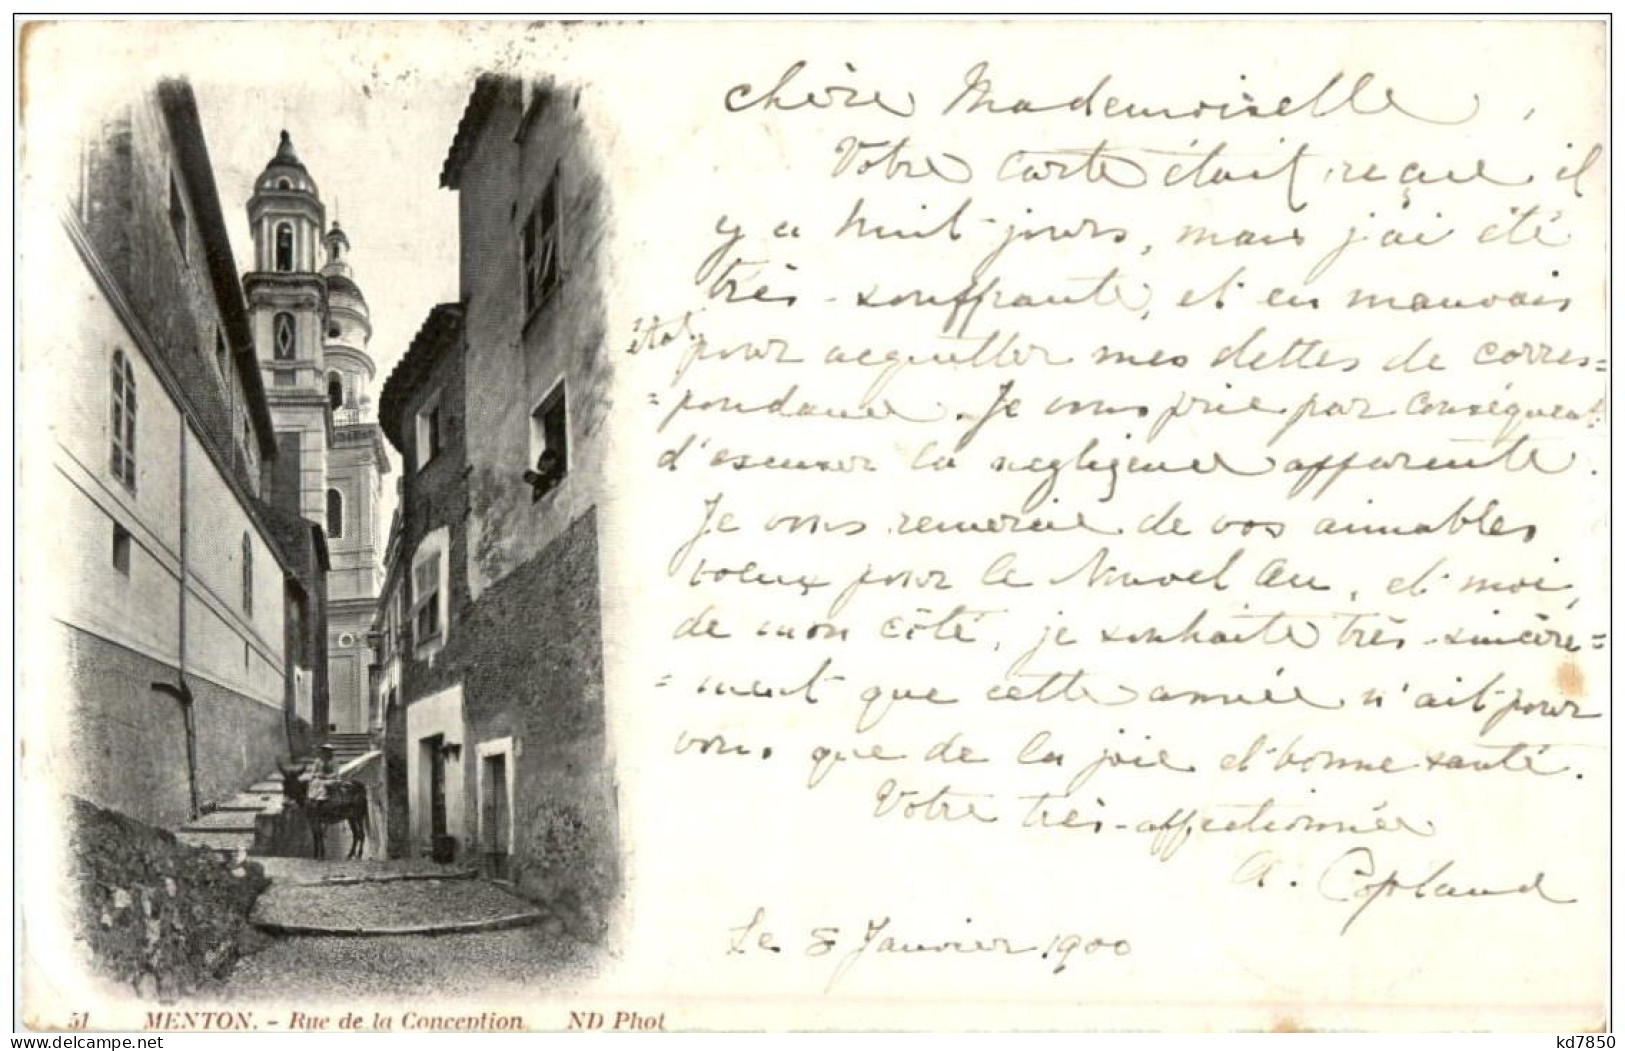 Chère Mademoiselle,
Votre carte était reçue il
y a huit jours, mais j'ai été
très-souffrante, et en mauvais
état pour acquitter mes dettes de corres=
=pondance. Je vous prie par conséquent
d'excuser la negligence apparente.
Je vous remercie de vos aimables
voeux pour le Nouvel An, et moi,
de mon côté, je souhaite très-sincère=
=ment que cette année n'ait pour
vous que de la joie et bonne santé.
Votre très-affectionnée
A. Copland
Le 8 Janvier 1900
51 MENTON. - Rue de la Conception ND Phot
delcampe.net
kd7850